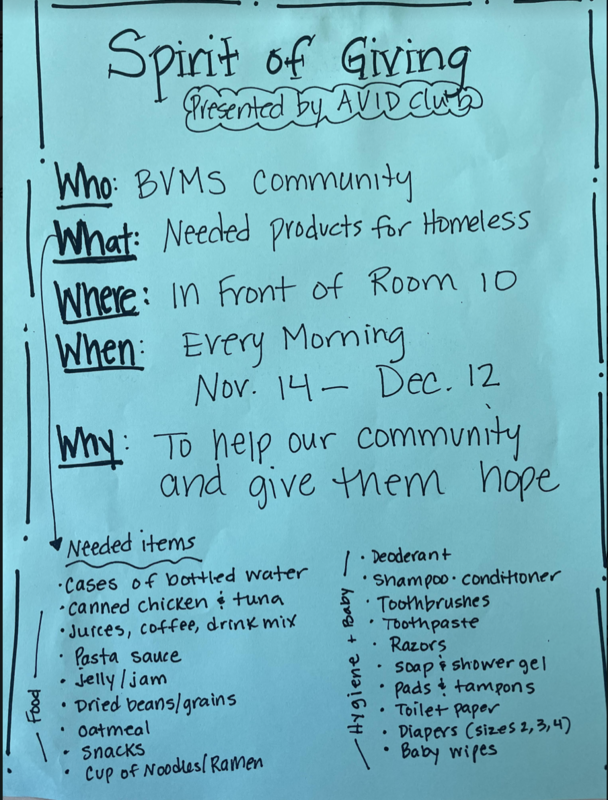 Spirit of Giving
Presented by AVID Club
Who: BVMS Community
What: Needed Products for Homeless
Where: In Front of Room 10
When: Every Morning
Nov. 14 – Dec. 12
Why: To help our community
and give them hope
Needed items
Food
• Cases of bottled water
• canned chicken & tuna
• Juices, coffee, drink mix
• Pasta sauce
• Jelly/jam
• Dried beans/grains
• oatmeal
• snacks
• Cup of Noodles/Ramen
Hygiene + Baby
• Deoderant
• Shampoo • conditioner
• Toothbrushes
• Toothpaste
• Razors
• soap & shower gel
• pads & tampons
• Toilet paper
• Diapers (sizes 2,3,4)
• Baby wipes